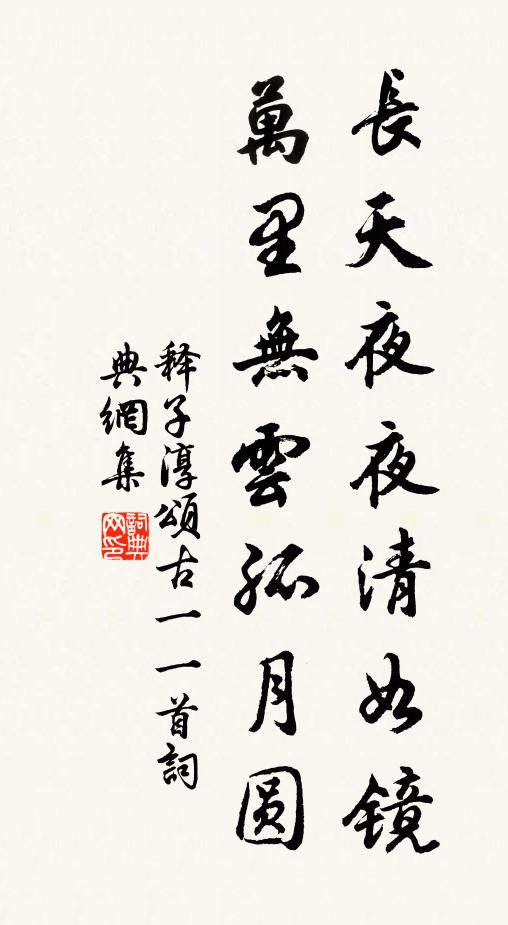 長天夜夜清如镜
萬里無雲孤月圆
释子淳頌古一一首詞
典網集
詞典
网印